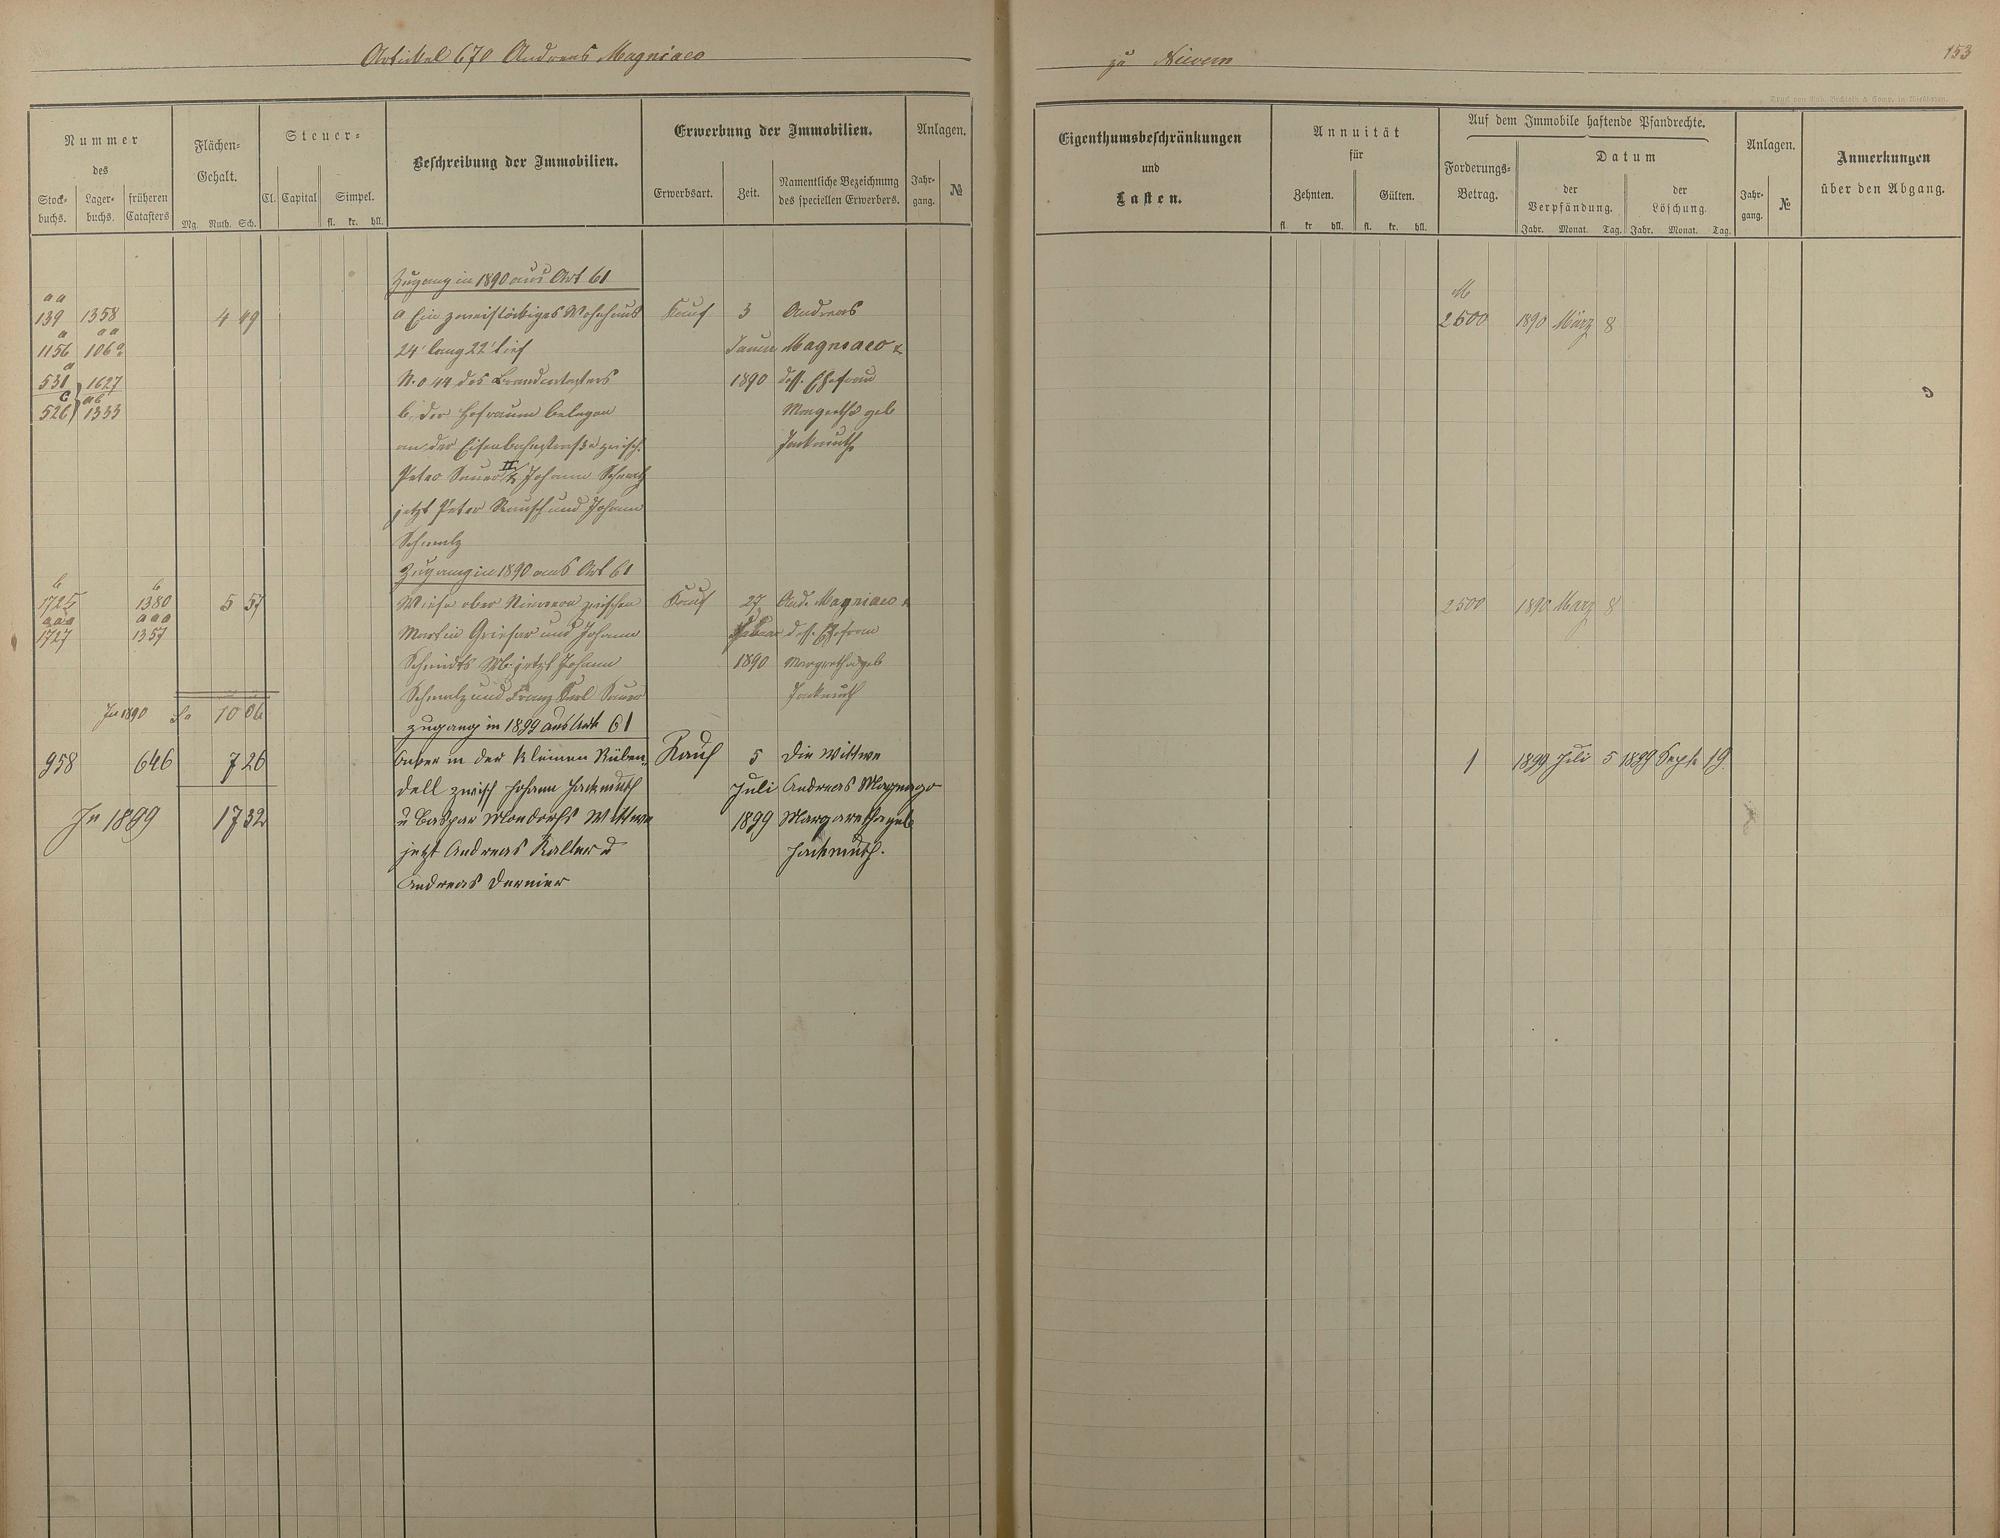 Artikel 670 Andreas Magniaco
zu Nievern
153
Nummer
des
Stock-
buchs.
Lager-
buchs.
früheren
Catasters
Flächen-
Gehalt.
Mg. Ruth. Sch.
Steuer-
Cl. Capital Simpel.
fl. kr. hll.
Beschreibung der Immobilien.
Erwerbung der Immobilien.
Erwerbsart. Zeit.
Namentliche Bezeichnung
des speciellen Erwerbers.
Anlagen.
Jahr-
gang.
№
Eigenthumsbeschränkungen
und
Lasten.
Annuität
für
Zehnten. Gülten.
fl. kr. hll. fl. kr. hll.
Auf dem Immobile haftende Pfandrechte.
Forderungs-
Betrag.
Datum
der
Verpfändung.
der
Löschung.
Jahr. Monat. Tag. Jahr. Monat. Tag.
Anlagen.
Jahr-
gang.
№
Anmerkungen
über den Abgang.
Zugang in 1890 aus Art 61
aa
139 1358 4 49 a Ein zweistöckiges Wohnhaus Kauf 3 Andreas
M
2500 1890 März 8
a aa
1156 106 24' lang 22' tief Magniaco &
a
531 1627 No 44 des Brandcatasters 1890 dess. Ehefrau
c
526 1333 b, der Hofraum belegen Margretha geb
an der Eisenbahnstraße zwisch. Jackmuth
Peter Sauer II & Johann Schmalz
jetzt Peter Rausch und Johann
Schmalz
Zugang in 1890 aus Art 61
b b
1725 1380 5 57 Wiese ober Nievern zwischen Kauf 27 And. Magniaco &
2500 1890 März 8
aaa aaa
1727 1357 Martin Griesar und Johann dess. Ehefrau
Schmidts Wb. jetzt Johann 1890 Margretha geb
Schmalz und Franz Karl Sauer Jackmuth
In 1890 Sa 10 06
Zugang in 1899 aus Art 61
958 646 7 26 Acker in der kleinen Rüben- Kauf 5 Die Wittwe
1 1899 Juli 5 1899 Sept 19.
dell zwisch Johann Jackmuth Juli Andreas Magnago
In 1899 17 32 u Caspar Mondorfs Wittwe 1899 Margaretha geb
jetzt Andreas Kalter u Jackmuth.
Andreas Dernier